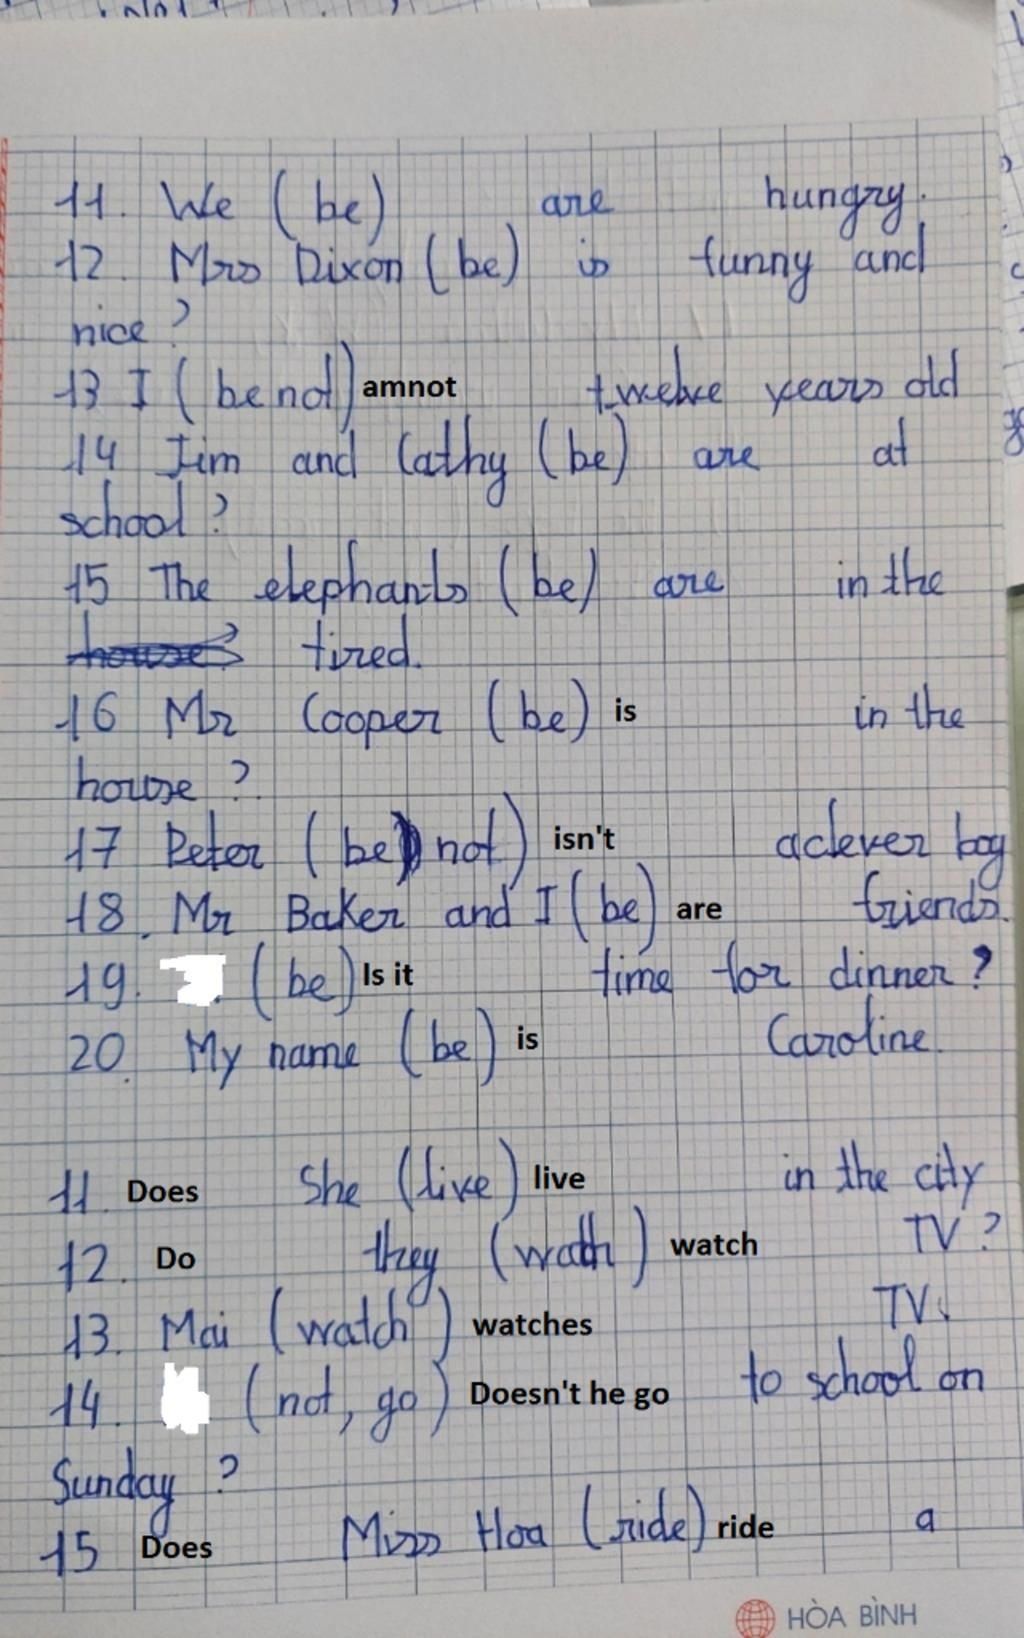 11. We (be) are hungry.
12. Mrs Dixon (be) is funny and
nice?
13 I (be not) amnot twelve years old
14 Jim and Cathy (be) are at
school?
15 The elephants (be) are in the
house? tired.
16 Mr Cooper (be) is in the
house?
17 Peter (be not) isn't a clever boy
18. Mr Baker and I (be) are friends.
19. (be) Is it time for dinner?
20. My name (be) is Caroline.
11. Does She (live) live in the city
12. Do they (wath) watch TV?
13. Mai (watch) watches TV.
14. (not, go) Doesn't he go to school on
Sunday?
15 Does Miss Hoa (ride) ride a
HÒA BÌNH